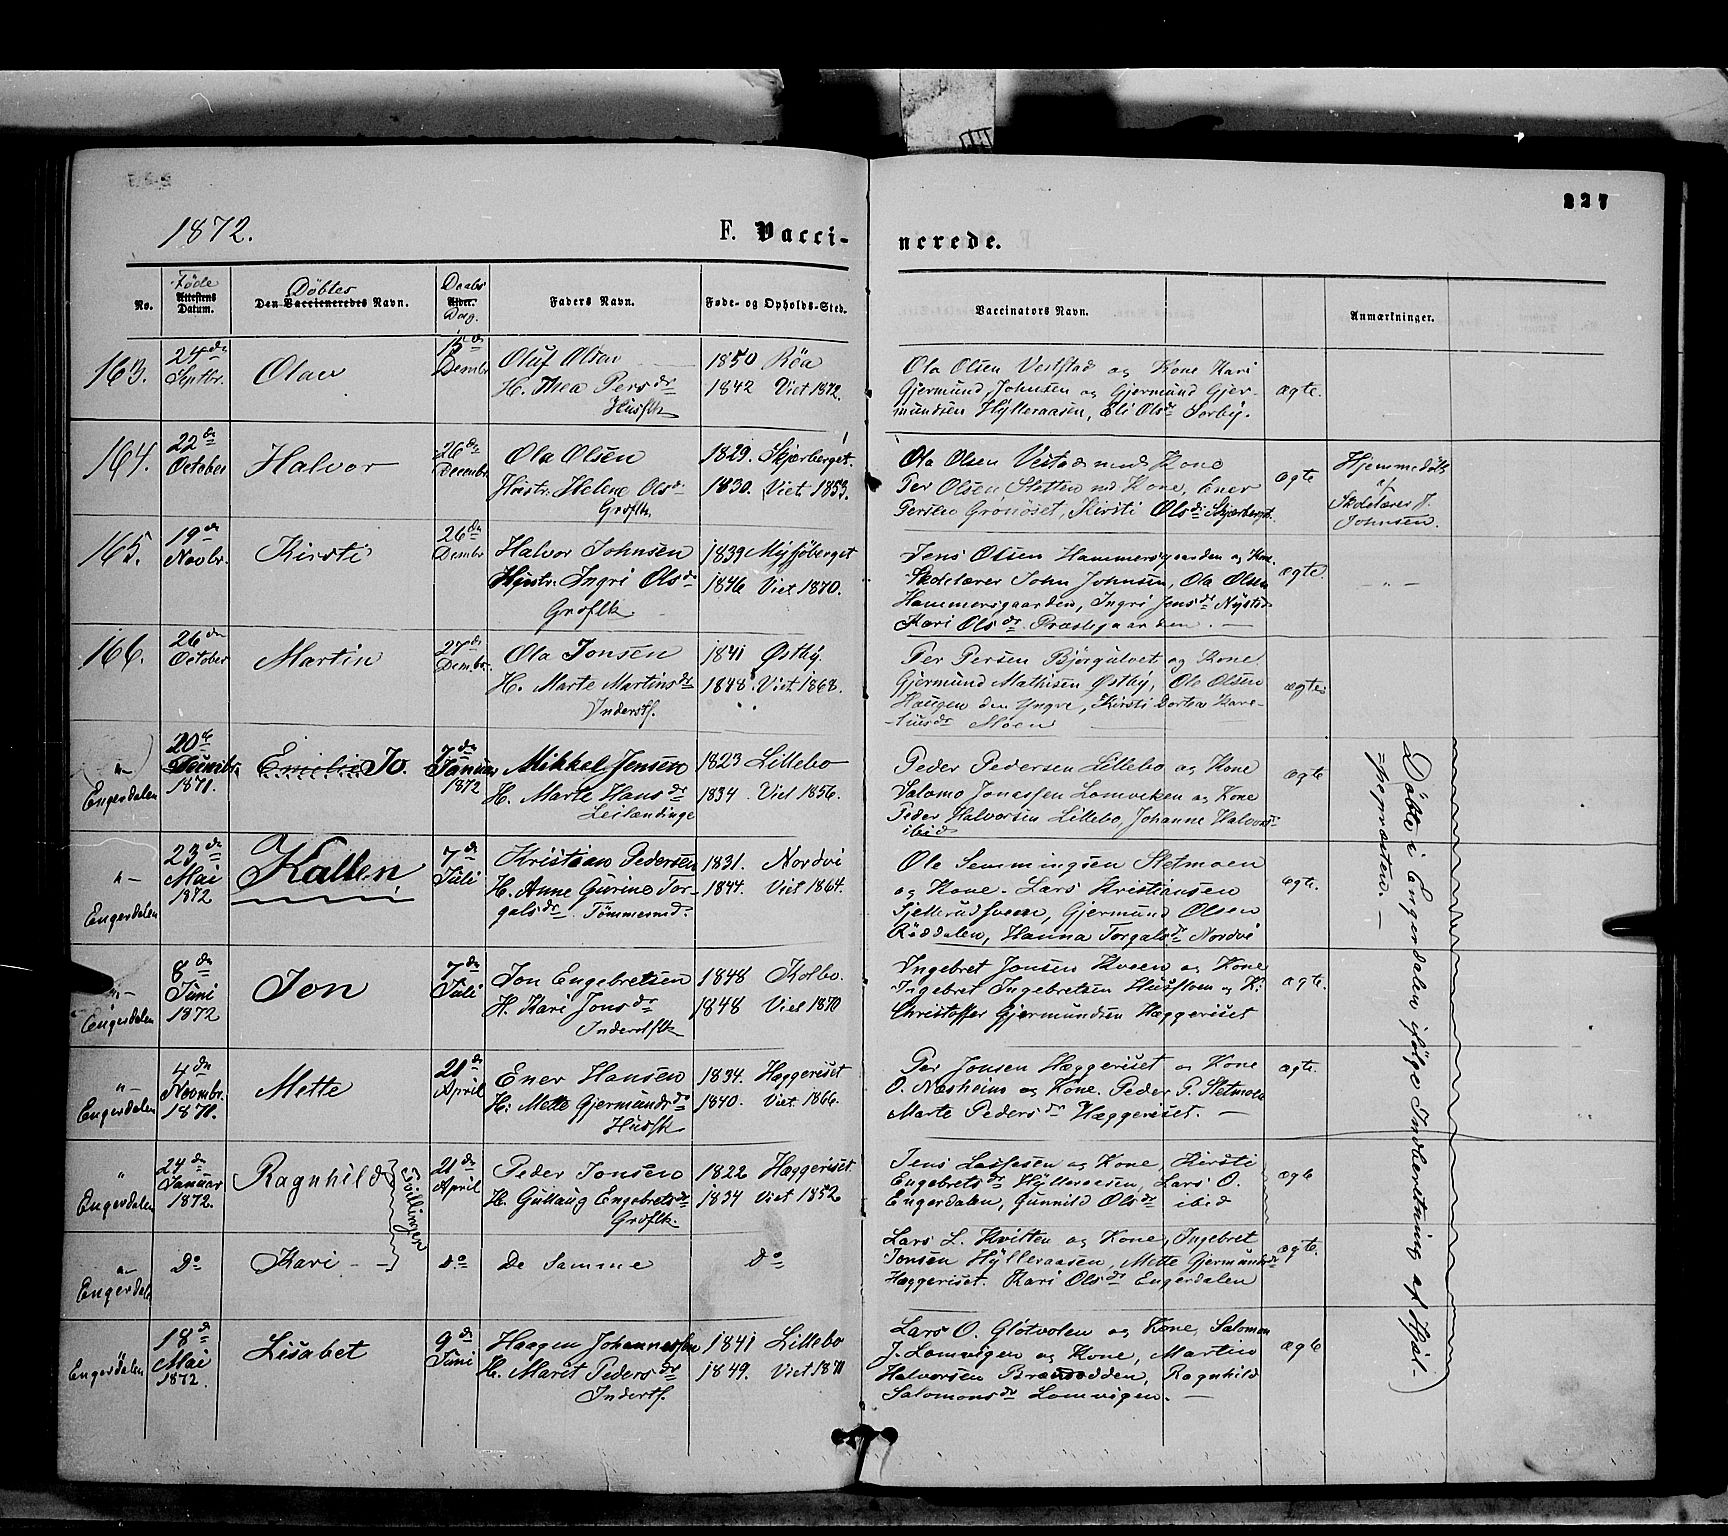 227
1872.
F. Vacci-
nerede.
No.
Føde
Attestens
Datum.
Døbtes
Den Vaccieneredes Navn.
Daabs
Alder.
Dag.
Faders Navn.
Føde- og Opholds-Sted.
Vaccinators Navn.
Anmærkninger.
163.
Septbr.
Olav
15 de
Dembr
Oluf Olsen
H. Thea Persdr
Husflk
1850 Røa
1842 Viet 1872.
Ola Olsen Vestad og Kone Kari
Gjermund Johnsen og Gjermund Gjer-
mundsen Hylleraasen, Eli Olsdr Sorby.
ægte.
164.
22 de
October
Halvor
26 de
Decembr
Ola Olsen
Hustr. Helene Olsd
Grdflk.
1829. Skjærberget.
1830. Viet 1853.
Ola Olsen Vestad med Kone
Per Olsen Sletten md Kone, Ener
Persen Grønoset, Kirsti Olsdr Skjærberget.
ægte
Hjemmedøbt
af
Skolelærer J.
Johnsen.
165.
19 de
Novbr.
Kirsti
26 de
Dembr
Halvor Johnsen
Hustr. Ingri Olsdr
Grdflk.
1839
1846 Viet 1870.
Jens Olsen Hammersgaarden og Kone.
Skolelærer John Johnsen, Ola Olsen
Hammersgaarden, Ingri Jensdr Nysted
Kari Olsdr. Præstegaarden. —
ægte.
— " —
166.
26 de
October
Martin
27 de
Dembr.
Ola Jonsen
H. Marte Martinsdr
Inderstf.
1841 Østby.
1848. Viet 1868.
Per Persen Bjørgulvet og Kone
Gjermund Mathisen Østby, Ole Olsen
Haugen den Yngre, Kirsti Dortea Kare-
liusdr Moen
ægte
" -
Engerdalen
20 de
Decmbr.
1871.
Emilie Jo.
7 de
Januar
1872
Mikkel Jensen
H. Marte Hansdr
Leilændinge
1823 Lillebo
1834. Viet 1856.
Peder Pedersen Lillebo og Kone
Salomo Jonessen Lomviken og Kone
Peder Halvorsen Lillebo, Johanne Halvorsdr
ibid
ægte
" -
Engerdalen
23 de
Mai
1872
Kallen
7 de
Juli
Kristian Pedersen
H. Anne Gurine Tor-
galsdr. Tømmermd.
1831. Nordvi
1844. Viet 1864.
Ole Semmingsen Sletmoen
og Kone. Lars Kristiansen
Sjellrudsveen, Gjermund Olsen
Røddalen, Hanna Torgalsdr Nordvi
ægte.
" -
Engerdalen
8 de
Juni
1872
Jon
7 de
Juli
Jon Engebretsen
H. Kari Jonsdr
Inderstflk
1848 Kolbo.
1848 Viet 1870
Ingebret Jonsen Kveen og Kone
Ingebret Ingebretsen Husfloen og K:
Christoffer Gjermundsen Hæggeriset
ægte.
" -
Engerdalen
4 de
Novmbr.
1871.
Mette
21 de
April
Ener Hansen
H: Mette Gjermundsdr
Husflk
1834. Hæggeriset
1840. Viet 1866.
Per Jonsen Hæggeriset og Kone
O. Næsheim og Kone. Peder P. Sletmoen
Marte Pedersdr Hæggeriset. —
ægte.
"
Engerdalen
24 de
Januar
1872.
Ragnhild
Tvillinger
21 de
April
Peder Jonsen
H. Gullaug Engebretsdr
Grdflk.
1822 Hæggeriset
1834 Viet 1852
Jens Lassesen og Kone, Kirsti
Engebretsdr Hylleraasen, Lars O.
Engerdalen, Gunnild Olsdr ibid
ægte
" -
Engerdalen
Do
Kari
do
De Samme
do
Lars L. Kvitten og Kone, Ingebret
Jonsen Hylleraasen, Mette Gjermundsdr
Hæggeriset. Kari Olsdr Engerdalen
ægte.
Engerdalen
18 de
Mai
1872.
Lisabet
9 de
Juni
Haagen Johannessen
H. Marit Pedersdr
Inderstf.
1841 Lillebo
1849. Viet 1871
Lars O. Gløtvolen og Kone, Salomon
J. Lomvigen og Kone, Martin
Halvorsen Brændodden, Ragnhild
Salomonsdr Lomvigen. —
ægte
Døbte i Engerdalen ifølge Indberetning af Hjæl-
=pepræsten. —